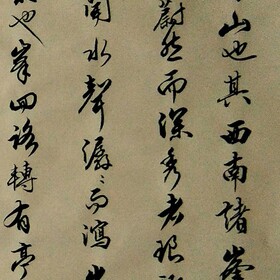 山也其西南諸峯
蔚然而深秀者琅
聞水聲潺々而瀉出
也峯回路轉有亭